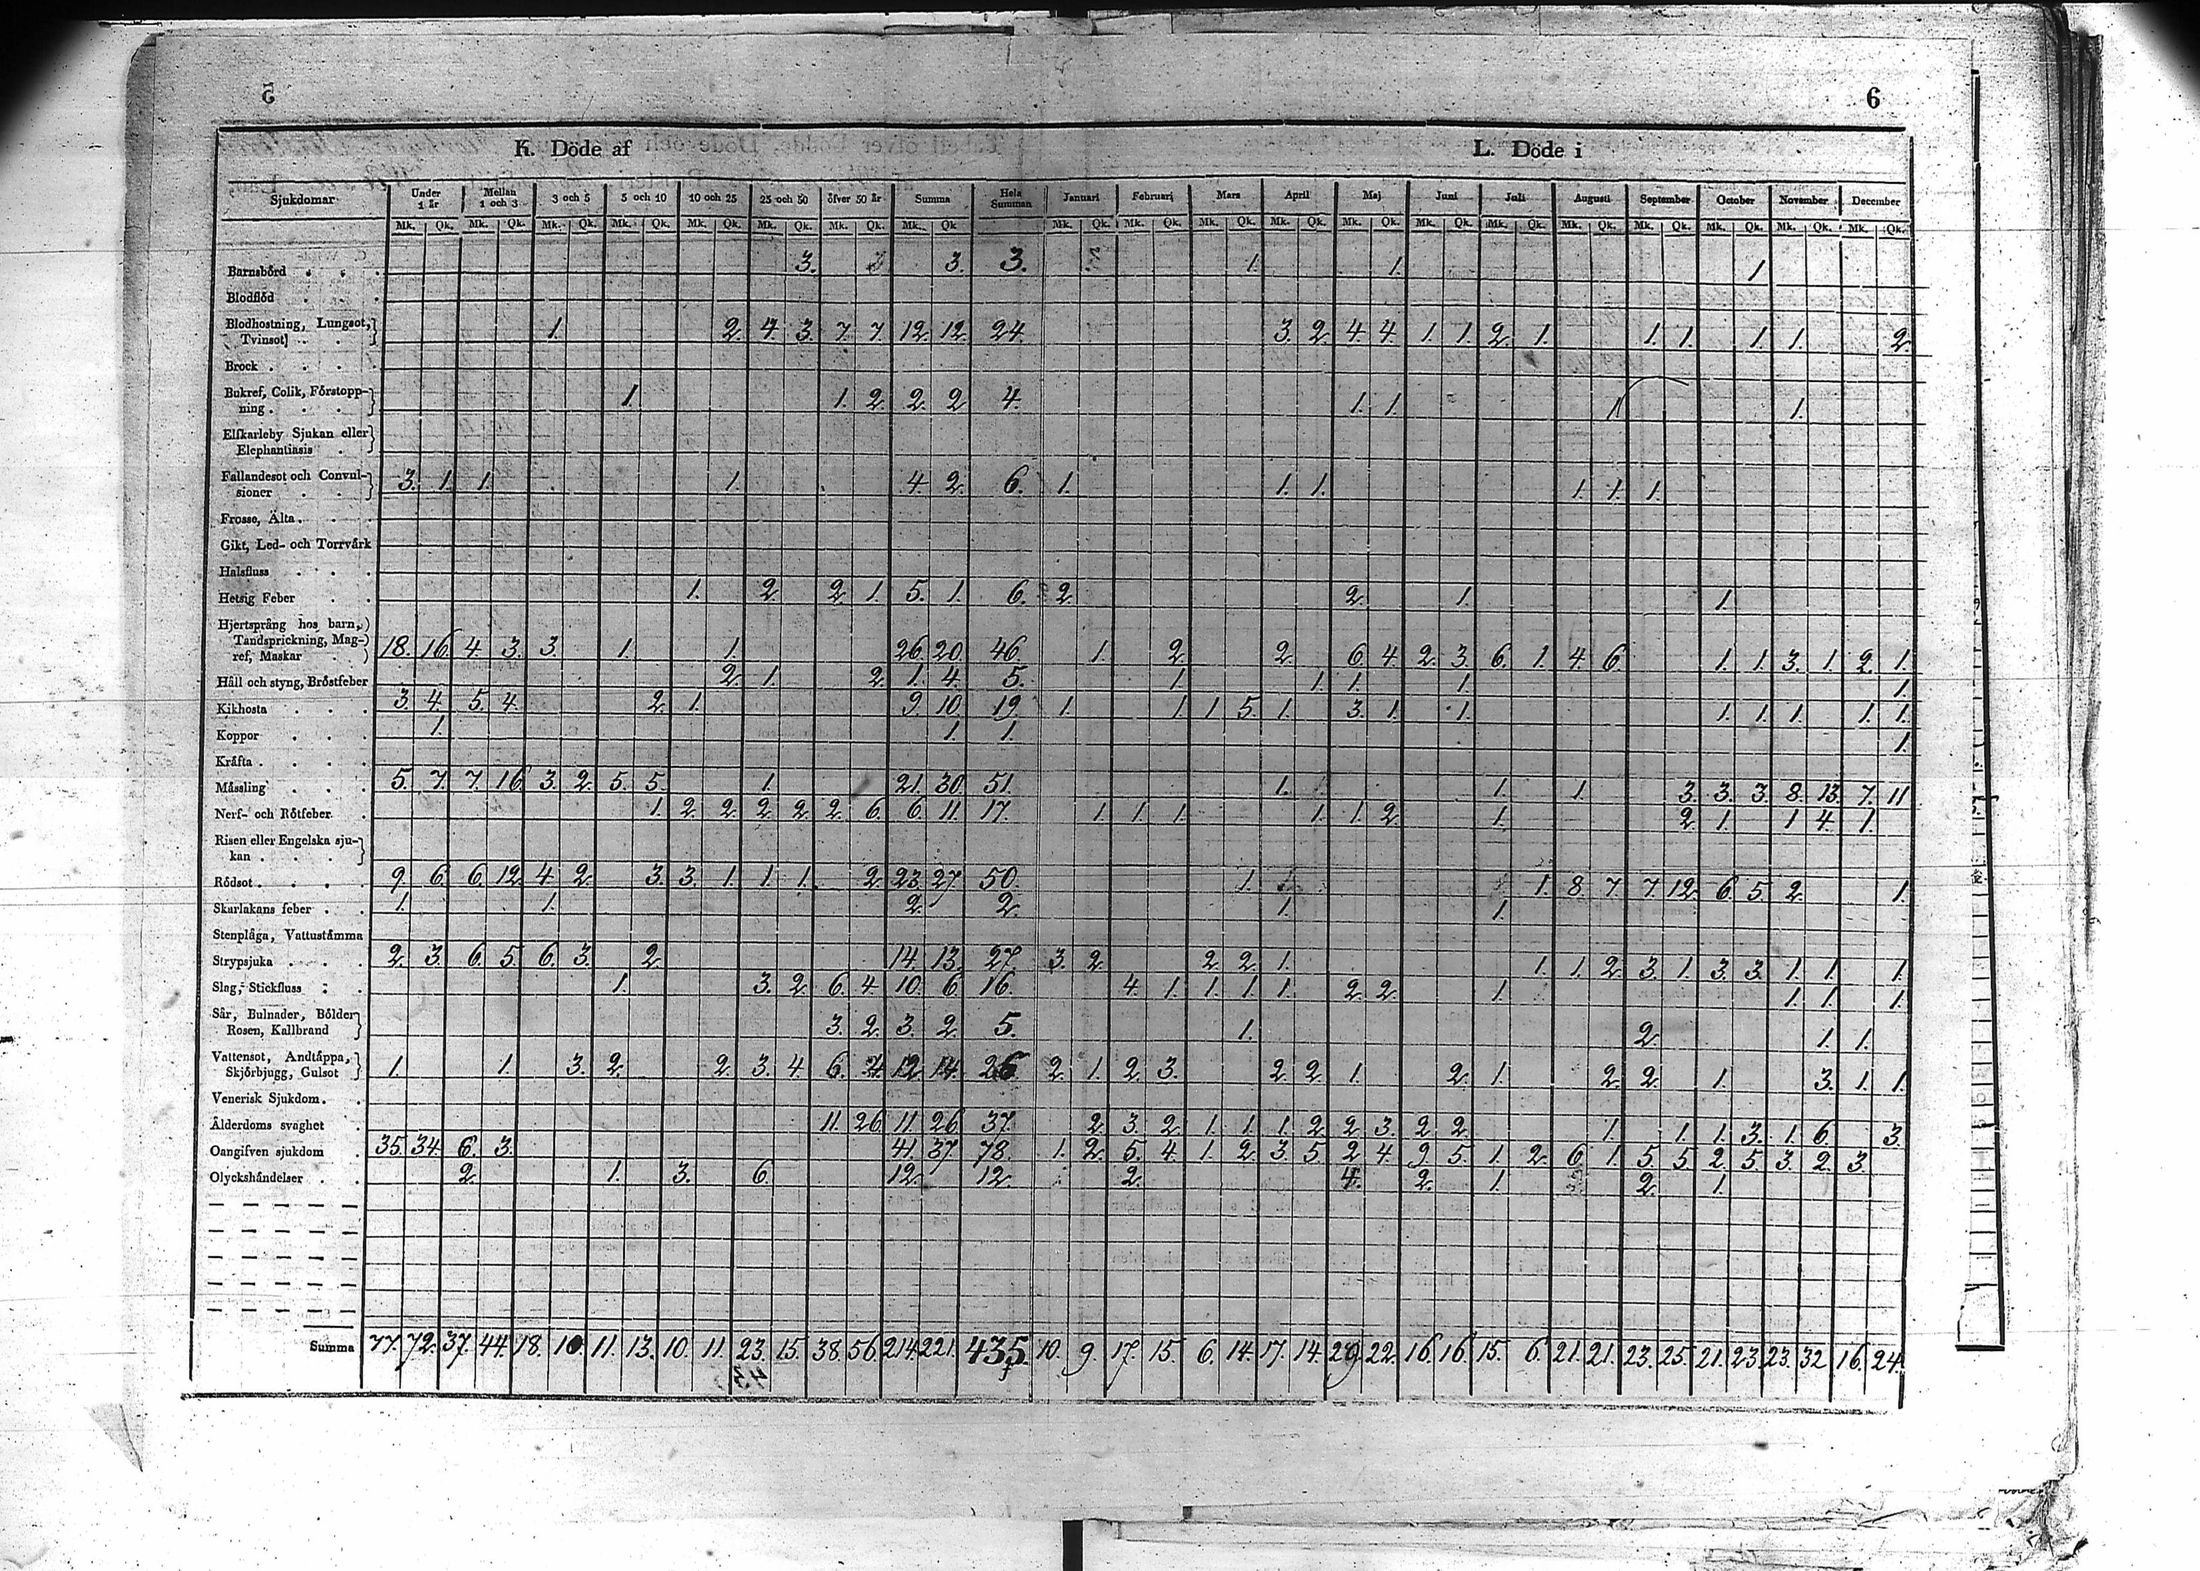 5
6
K. Döde af
L. Döde i
Sjukdomar
Under 1 år
Mellan 1 och 3
3 och 5
5 och 10
10 och 25
25 och 50
öfver 50 år
Summa
Hela Summan
Januari
Februari
Mars
April
Maj
Juni
Juli
Augusti
September
October
November
December
Mk. Qk. Mk. Qk. Mk. Qk. Mk. Qk. Mk. Qk. Mk. Qk. Mk. Qk. Mk. Qk. Mk. Qk. Mk. Qk. Mk. Qk. Mk. Qk. Mk. Qk. Mk. Qk. Mk. Qk. Mk. Qk. Mk. Qk. Mk. Qk. Mk. Qk. Mk. Qk.
Barnsbörd 3. 3. 3. 1. 1. 1
Blodflöd
Blodhostning, Lungsot,
Tvinsot 1. 2. 4. 3. 7. 7. 12. 12. 24. 3. 2. 4. 4. 1. 1. 2. 1. 1. 1. 1. 1. 2.
Brock
Bukref, Colik, Förstopp-
ning 1. 1. 2. 2. 2. 4. 1. 1. 1 1.
Elfkarleby Sjukan eller
Elephantiasis
Fallandesot och Convul-
sioner 3. 1. 1. 1. 4. 2. 6. 1. 1. 1. 1. 1. 1.
Frosso, Älta
Gikt, Led- och Torrvärk
Halsfluss
Hetsig Feber 1. 2. 2. 1. 5. 1. 6. 2. 2. 1. 1.
Hjertsprång hos barn,
Tandsprickning, Mag-
ref, Maskar 18. 16. 4. 3. 3. 1. 1. 26. 20. 46. 1. 2. 2. 6. 4. 2. 3. 6. 1. 4. 6. 1. 1. 3. 1. 2. 1.
Håll och styng, Bröstfeber 2. 1. 2. 1. 4. 5. 1. 1. 1. 1. 1.
Kikhosta 3. 4. 5. 4. 2. 1. 9. 10. 19. 1. 1. 1. 5. 1. 3. 1. 1. 1. 1. 1. 1. 1.
Koppor 1. 1. 1. 1.
Kräfta
Mässling 5. 7. 7. 16. 3. 2. 5. 5. 1. 21. 30. 51. 1. 1. 1. 3. 3. 3. 8. 13. 7. 11
Nerf- och Rötfeber 1. 2. 2. 2. 2. 2. 6. 6. 11. 17. 1. 1. 1. 1. 1. 2. 1. 2. 1. 1. 4. 1.
Risen eller Engelska sju-
kan
Rödsot 9. 6. 6. 12. 4. 2. 3. 3. 1. 1. 1. 2. 23. 27. 50. 1. 1. 8. 7. 7. 12. 6. 5. 2. 1.
Skarlakans feber 1. 1. 2. 2. 1. 1.
Stenplåga, Vattustämma
Strypsjuka 2. 3. 6. 5. 6. 3. 2. 14. 13. 27. 3. 2. 2. 2. 1. 1. 1. 2. 3. 1. 3. 3. 1. 1. 1.
Slag, Stickfluss 1. 3. 2. 6. 4. 10. 6. 16. 4. 1. 1. 1. 1. 2. 2. 1. 1. 1. 1.
Sår, Bulnader, Bölder
Rosen, Kallbrand 3. 2. 3. 2. 5. 1. 2. 1. 1.
Vattensot, Andtäppa,
Skjörbjugg, Gulsot 1. 1. 3. 2. 2. 3. 4. 6. 4. 12. 14. 26 2. 1. 2. 3. 2. 2. 1. 2. 1. 2. 2. 1. 3. 1. 1.
Venerisk Sjukdom
Ålderdoms svaghet 11. 26 11. 26 37. 2. 3. 2. 1. 1. 1. 2. 2. 3. 2. 2. 1. 1. 1. 3. 1. 6. 3.
Oangifven sjukdom 35. 34. 6. 3. 41. 37. 78. 1. 2. 5. 4. 1. 2. 3. 5. 2. 4. 9. 5. 1. 2. 6. 1. 5. 5. 2. 5. 3. 2. 3.
Olyckshändelser 2. 1. 3. 6. 12. 12. 2. 4. 2. 1. 2. 1.
Summa 77. 72. 37. 44. 18. 10. 11. 13. 10. 11. 23. 15. 38. 56. 214. 221. 435. 10. 9. 17. 15. 6. 14. 17. 14. 29. 22. 16. 16. 15. 6. 21. 21. 23. 25. 21. 23. 23. 32 16. 24.